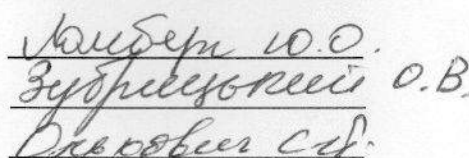 Ламберг Ю.О.
Зубрицький О.В.
Олькович